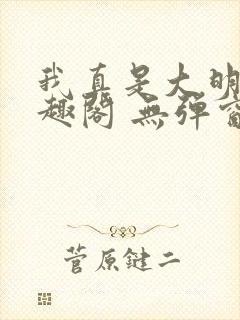 我真是大明
趣阁 無弹窗
菅原鍵二